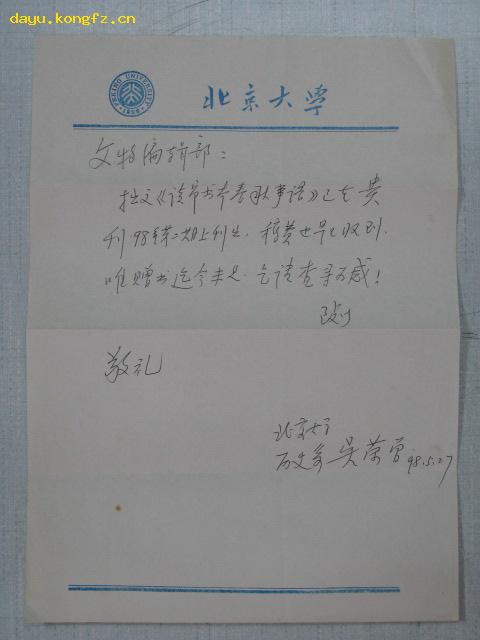 dayu.kongfz.cn
PEKING UNIVERSITY
1898
北京大学
文物编辑部：
拙文《读帛书本春秋事语》已在贵
刊98年第二期上刊出，稿费也早已收到。
唯赠书迄今未见，乞请查寻为感！
此
敬礼
北京大学
历史系 吴荣曾 98.5.27